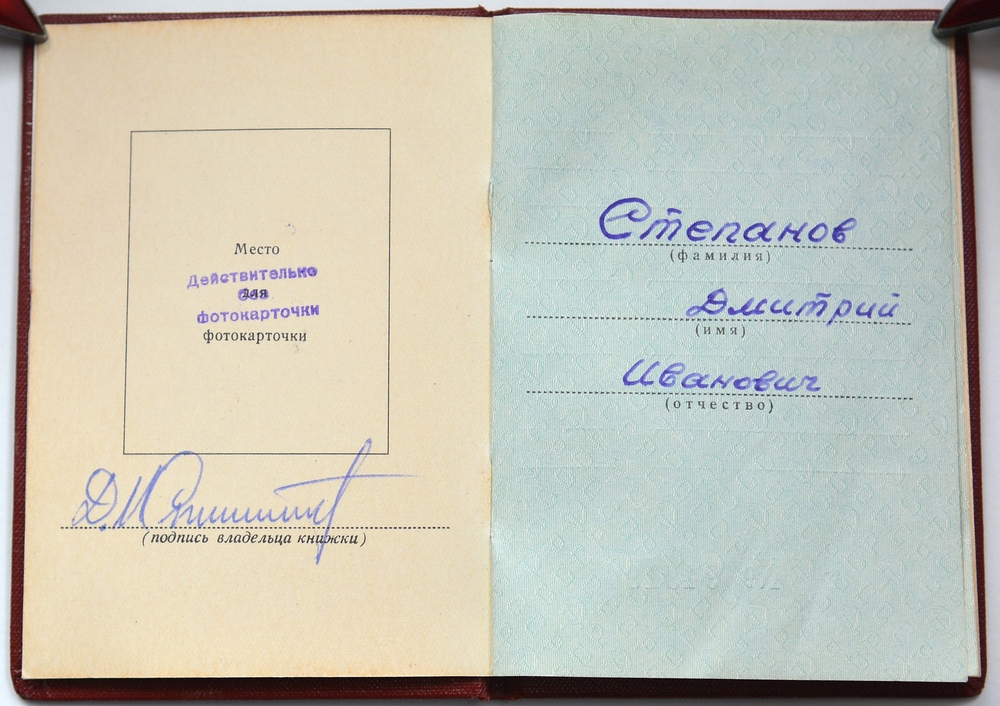 Место
Действительно
для
без
фотокарточки
фотокарточки
Д.И.
(подпись владельца книжки)
Степанов
(фамилия)
Дмитрий
(имя)
Иванович
(отчество)